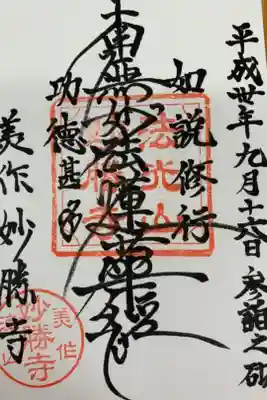 平成卅年九月十六日 参詣之砌
如説修行
南無妙法蓮華経
功徳甚多
美作妙勝寺
法光山
美作
妙勝寺